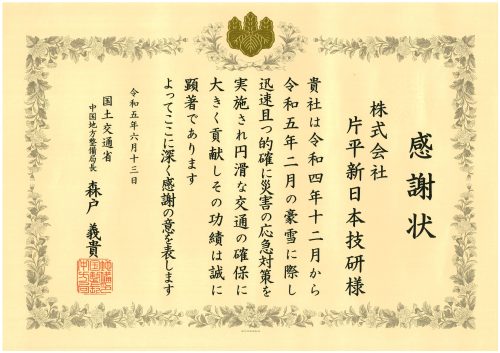 感謝状
株式会社
片平新日本技研様
貴社は令和四年十二月から
令和五年二月の豪雪に際し
迅速且つ的確に災害の応急対策を
実施され円滑な交通の確保に
大きく貢献しその功績は誠に
顕著であります
よってここに深く感謝の意を表します
令和五年六月十三日
国土交通省
中国地方整備局長
森戸義貴